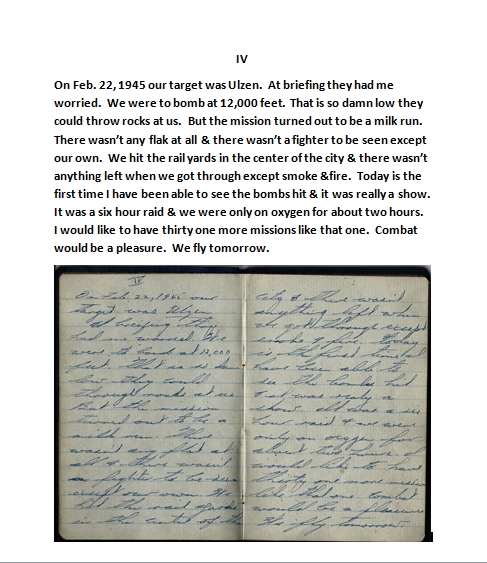 IV
On Feb. 22, 1945 our target was Ulzen.  At briefing they had me
worried.  We were to bomb at 12,000 feet.  That is so damn low they
could throw rocks at us.  But the mission turned out to be a milk run.
There wasn't any flak at all & there wasn't a fighter to be seen except
our own.  We hit the rail yards in the center of the city & there wasn't
anything left when we got through except smoke &fire.  Today is the
first time I have been able to see the bombs hit & it was really a show.
It was a six hour raid & we were only on oxygen for about two hours.
I would like to have thirty one more missions like that one.  Combat
would be a pleasure.  We fly tomorrow.
IV
On Feb. 22, 1945 our
target was Ulzen
At briefing they
had me worried. We
were to bomb at 12,000
feet. That is so damn
low they could
through rocks at us
But the mission
turned out to be a
milk run. There
wasn't any flak at
all & there wasn't
a fighter to be seen
except our own. We
hit the rail yards
in the center of the
city & there wasn't
anything left when
we got through except
smoke & fire. Today
is the first time I
have been able to
see the bombs hit
& it was really a
show. It was a six
hour raid & we were
only on oxygen for
about two hours. I
would like to have
thirty one more missions
like that one. Combat
would be a pleasure
We fly tomorrow.